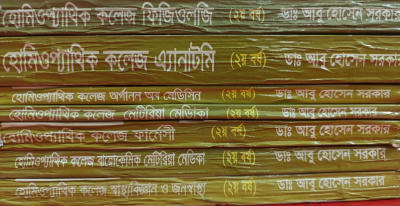 হোমিওপ্যাথিক কলেজ ফিজিওলজি (২য় বর্ষ) ডাঃ আবু হোসেন সরকার
হোমিওপ্যাথিক কলেজ এ্যানাটমি (২য় বর্ষ) ডাঃ আবু হোসেন সরকার
হোমিওপ্যাথিক কলেজ অর্গানন অব মেডিসিন (২য় বর্ষ) ডাঃ আবু হোসেন সরকার
হোমিওপ্যাথিক কলেজ মেটিরিয়া মেডিকা (২য় বর্ষ) ডাঃ আবু হোসেন সরকার
হোমিওপ্যাথিক কলেজ ফার্মেসী (২য় বর্ষ) ডাঃ আবু হোসেন সরকার
হোমিওপ্যাথিক কলেজ বায়োকেমিক মেটিরিয়া মেডিকা (২য় বর্ষ) ডাঃ আবু হোসেন সরকার
হোমিওপ্যাথিক কলেজ স্বাস্থ্যবিজ্ঞান ও জনস্বাস্থ্য (২য় বর্ষ) ডাঃ আবু হোসেন সরকার